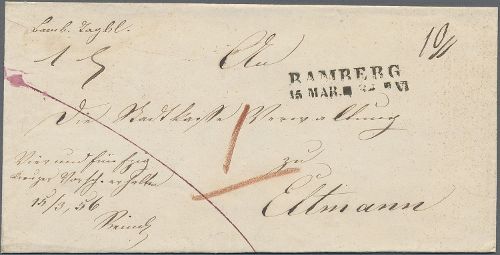 Bamb. Tagbl.
An
BAMBERG
15 MAR.
Die Stadtkasse Verwaltung
zu
Eltmann
Vier und fünfzig
Kreuzer Vorschuss erhalten
15/3, 56